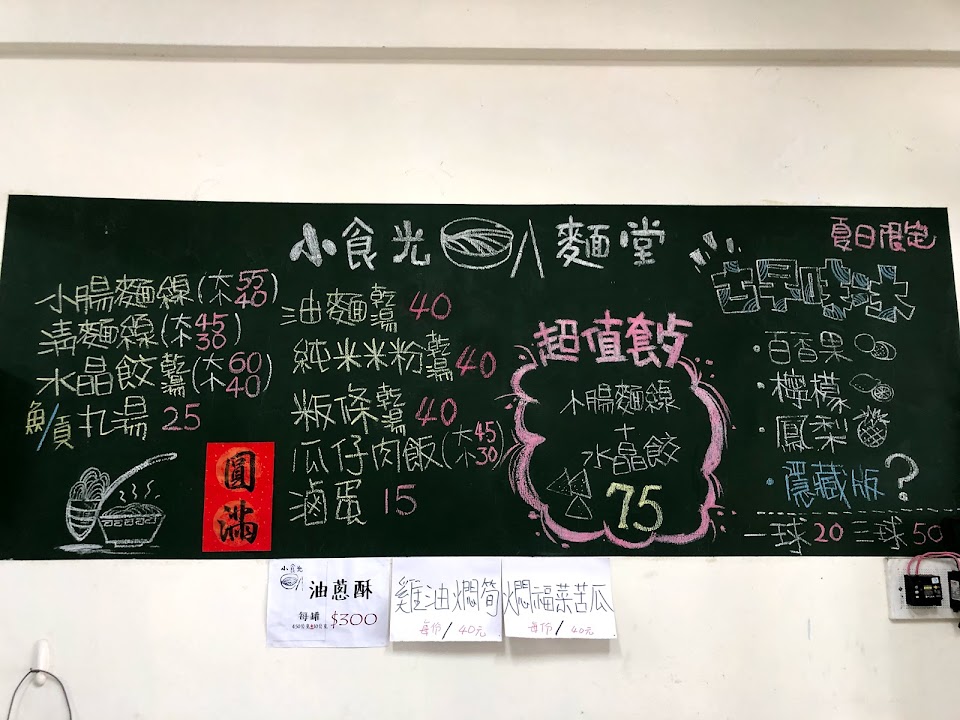 小食光 麵堂
小腸麵線(大55 小40)
清麵線(大45 小30)
水晶餃 乾湯(大60 小40)
魚/貢丸湯 25
油麵 乾湯 40
純米米粉 乾湯 40
粄條 乾湯 40
瓜仔肉飯(大45 小30)
滷蛋 15
圓滿
超值套餐
小腸麵線
+
水晶餃
75
夏日限定
古早味冰
·百香果
·檸檬
·鳳梨
·隱藏版?
一球20 三球50
小食光
油蔥酥
每罐 $300
雞油燜筍
每份/40元
燜福菜苦瓜
每份/40元